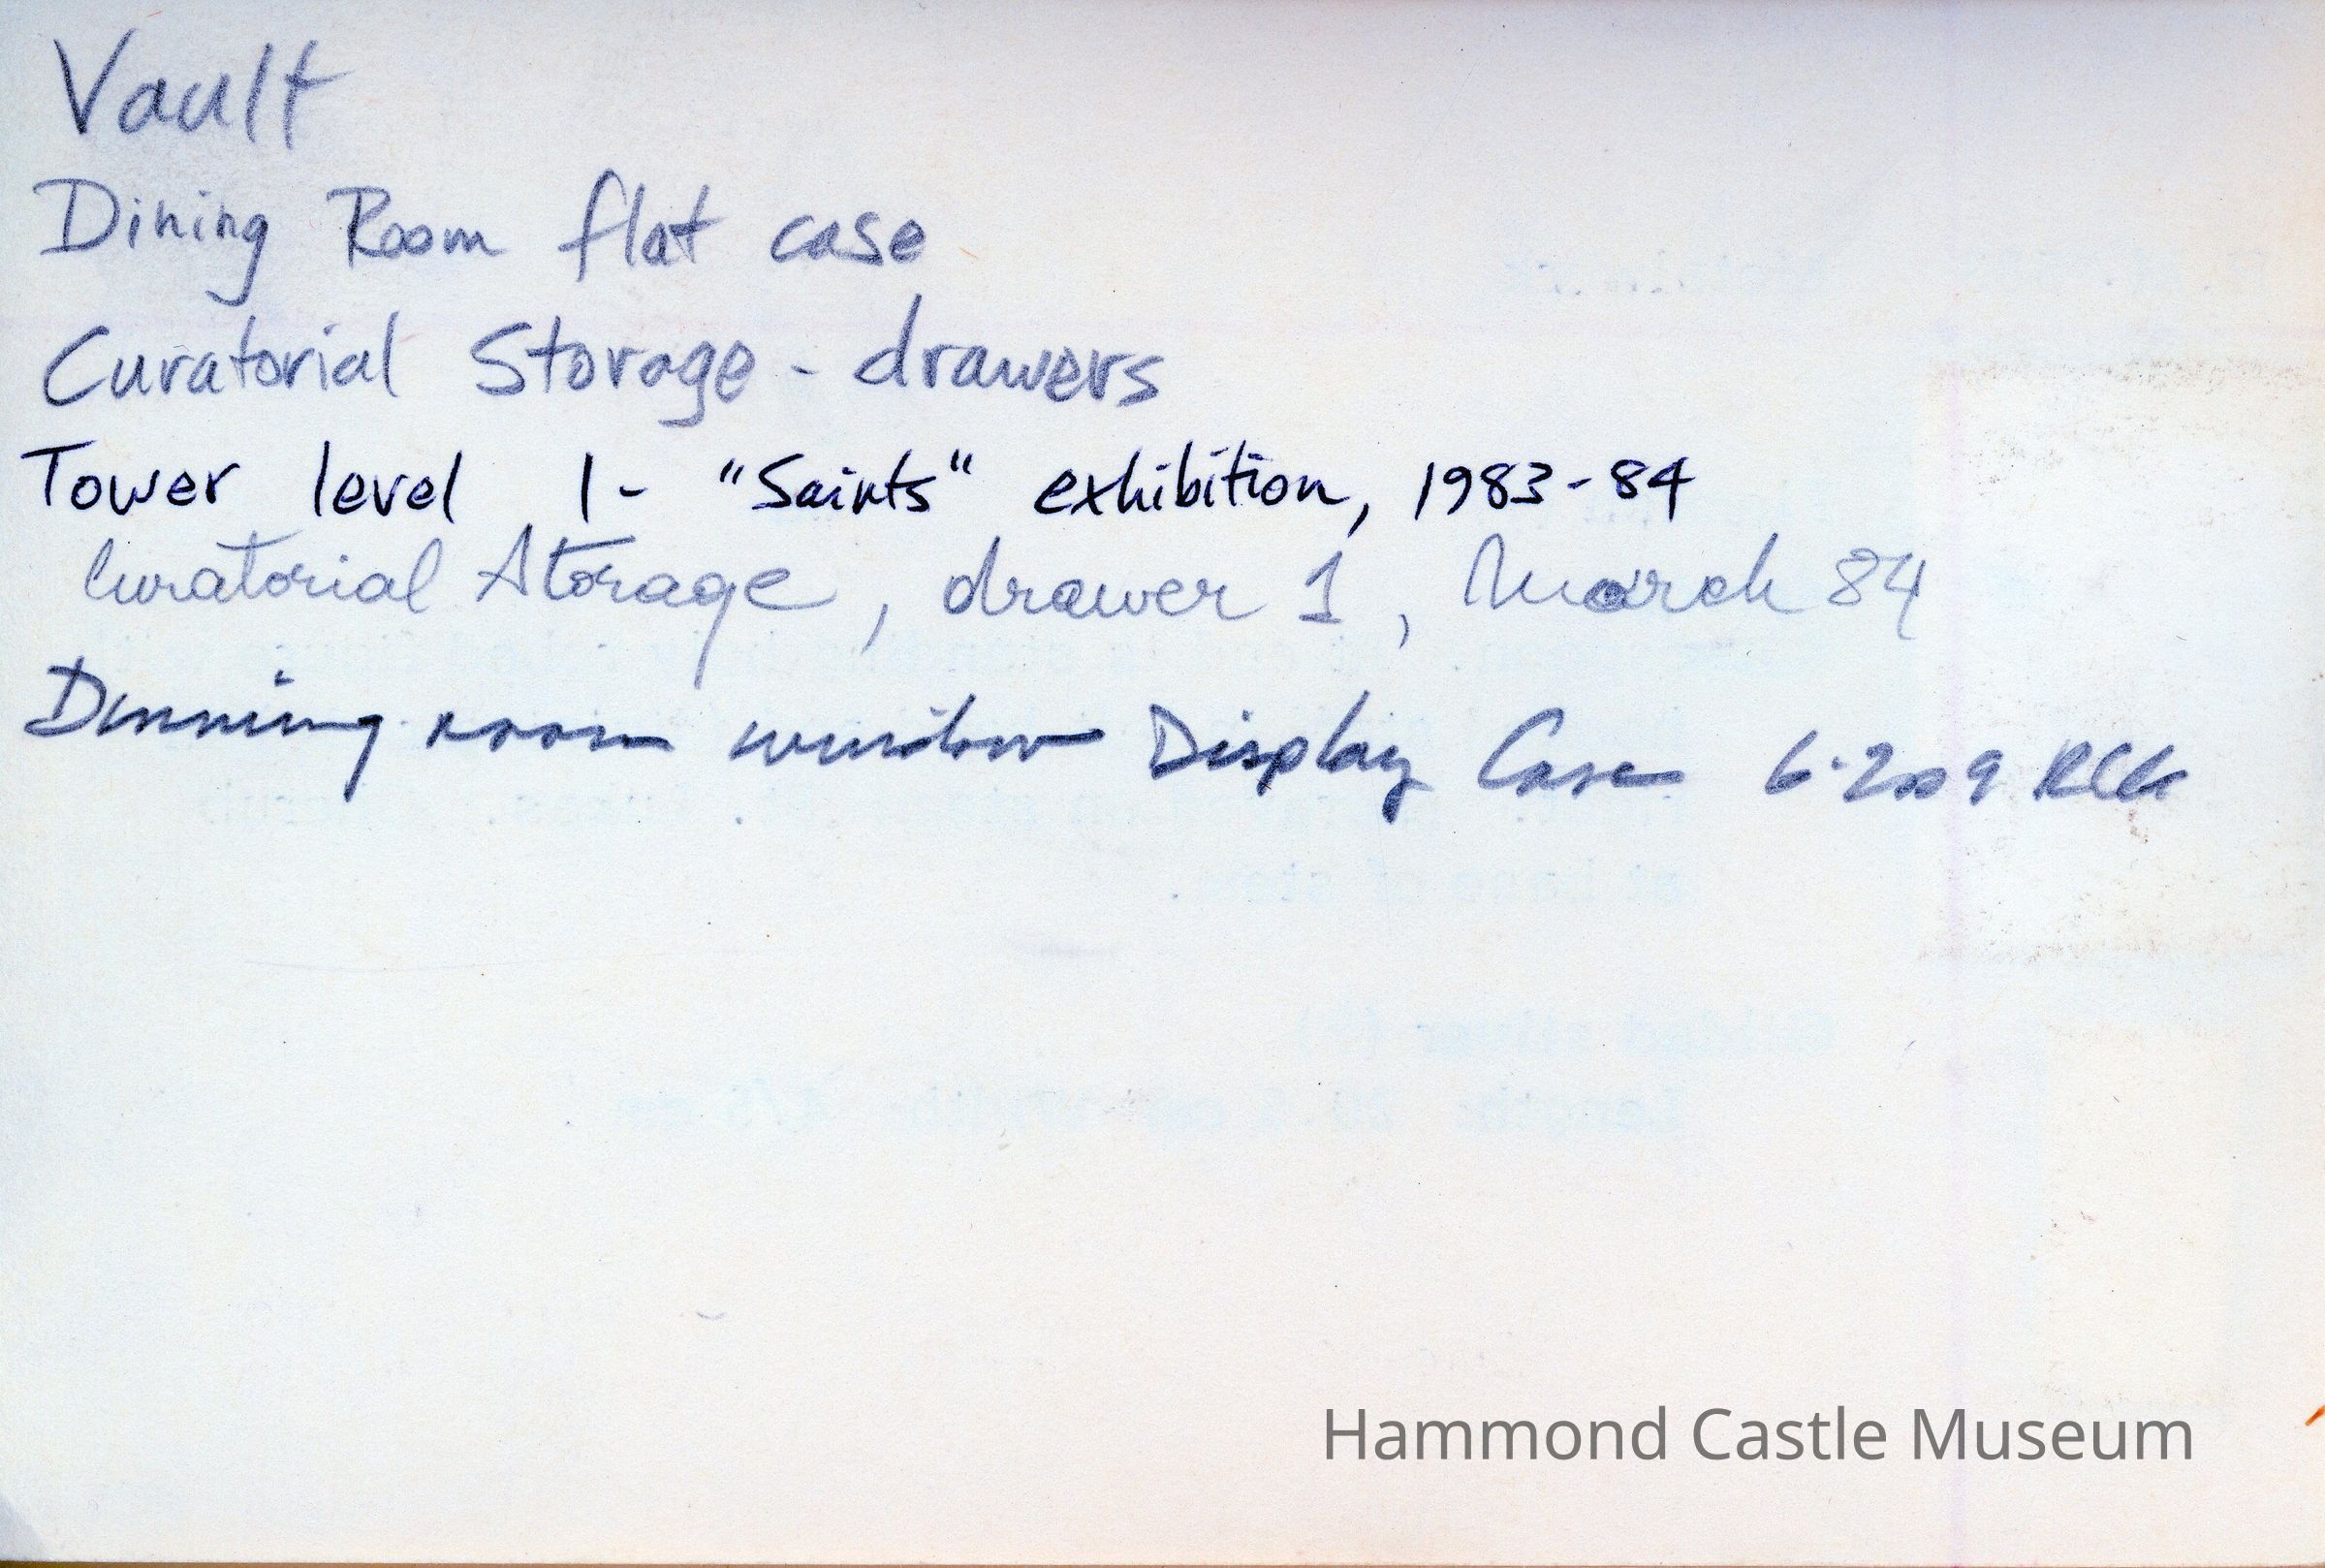 Vault
Dining Room flat case
Curatorial Storage - drawers
Tower level 1 - "Saints" exhibition, 1983-84
Curatorial Storage, drawer 1, March 84
Dinning room window Display Case 6·2009
Hammond Castle Museum